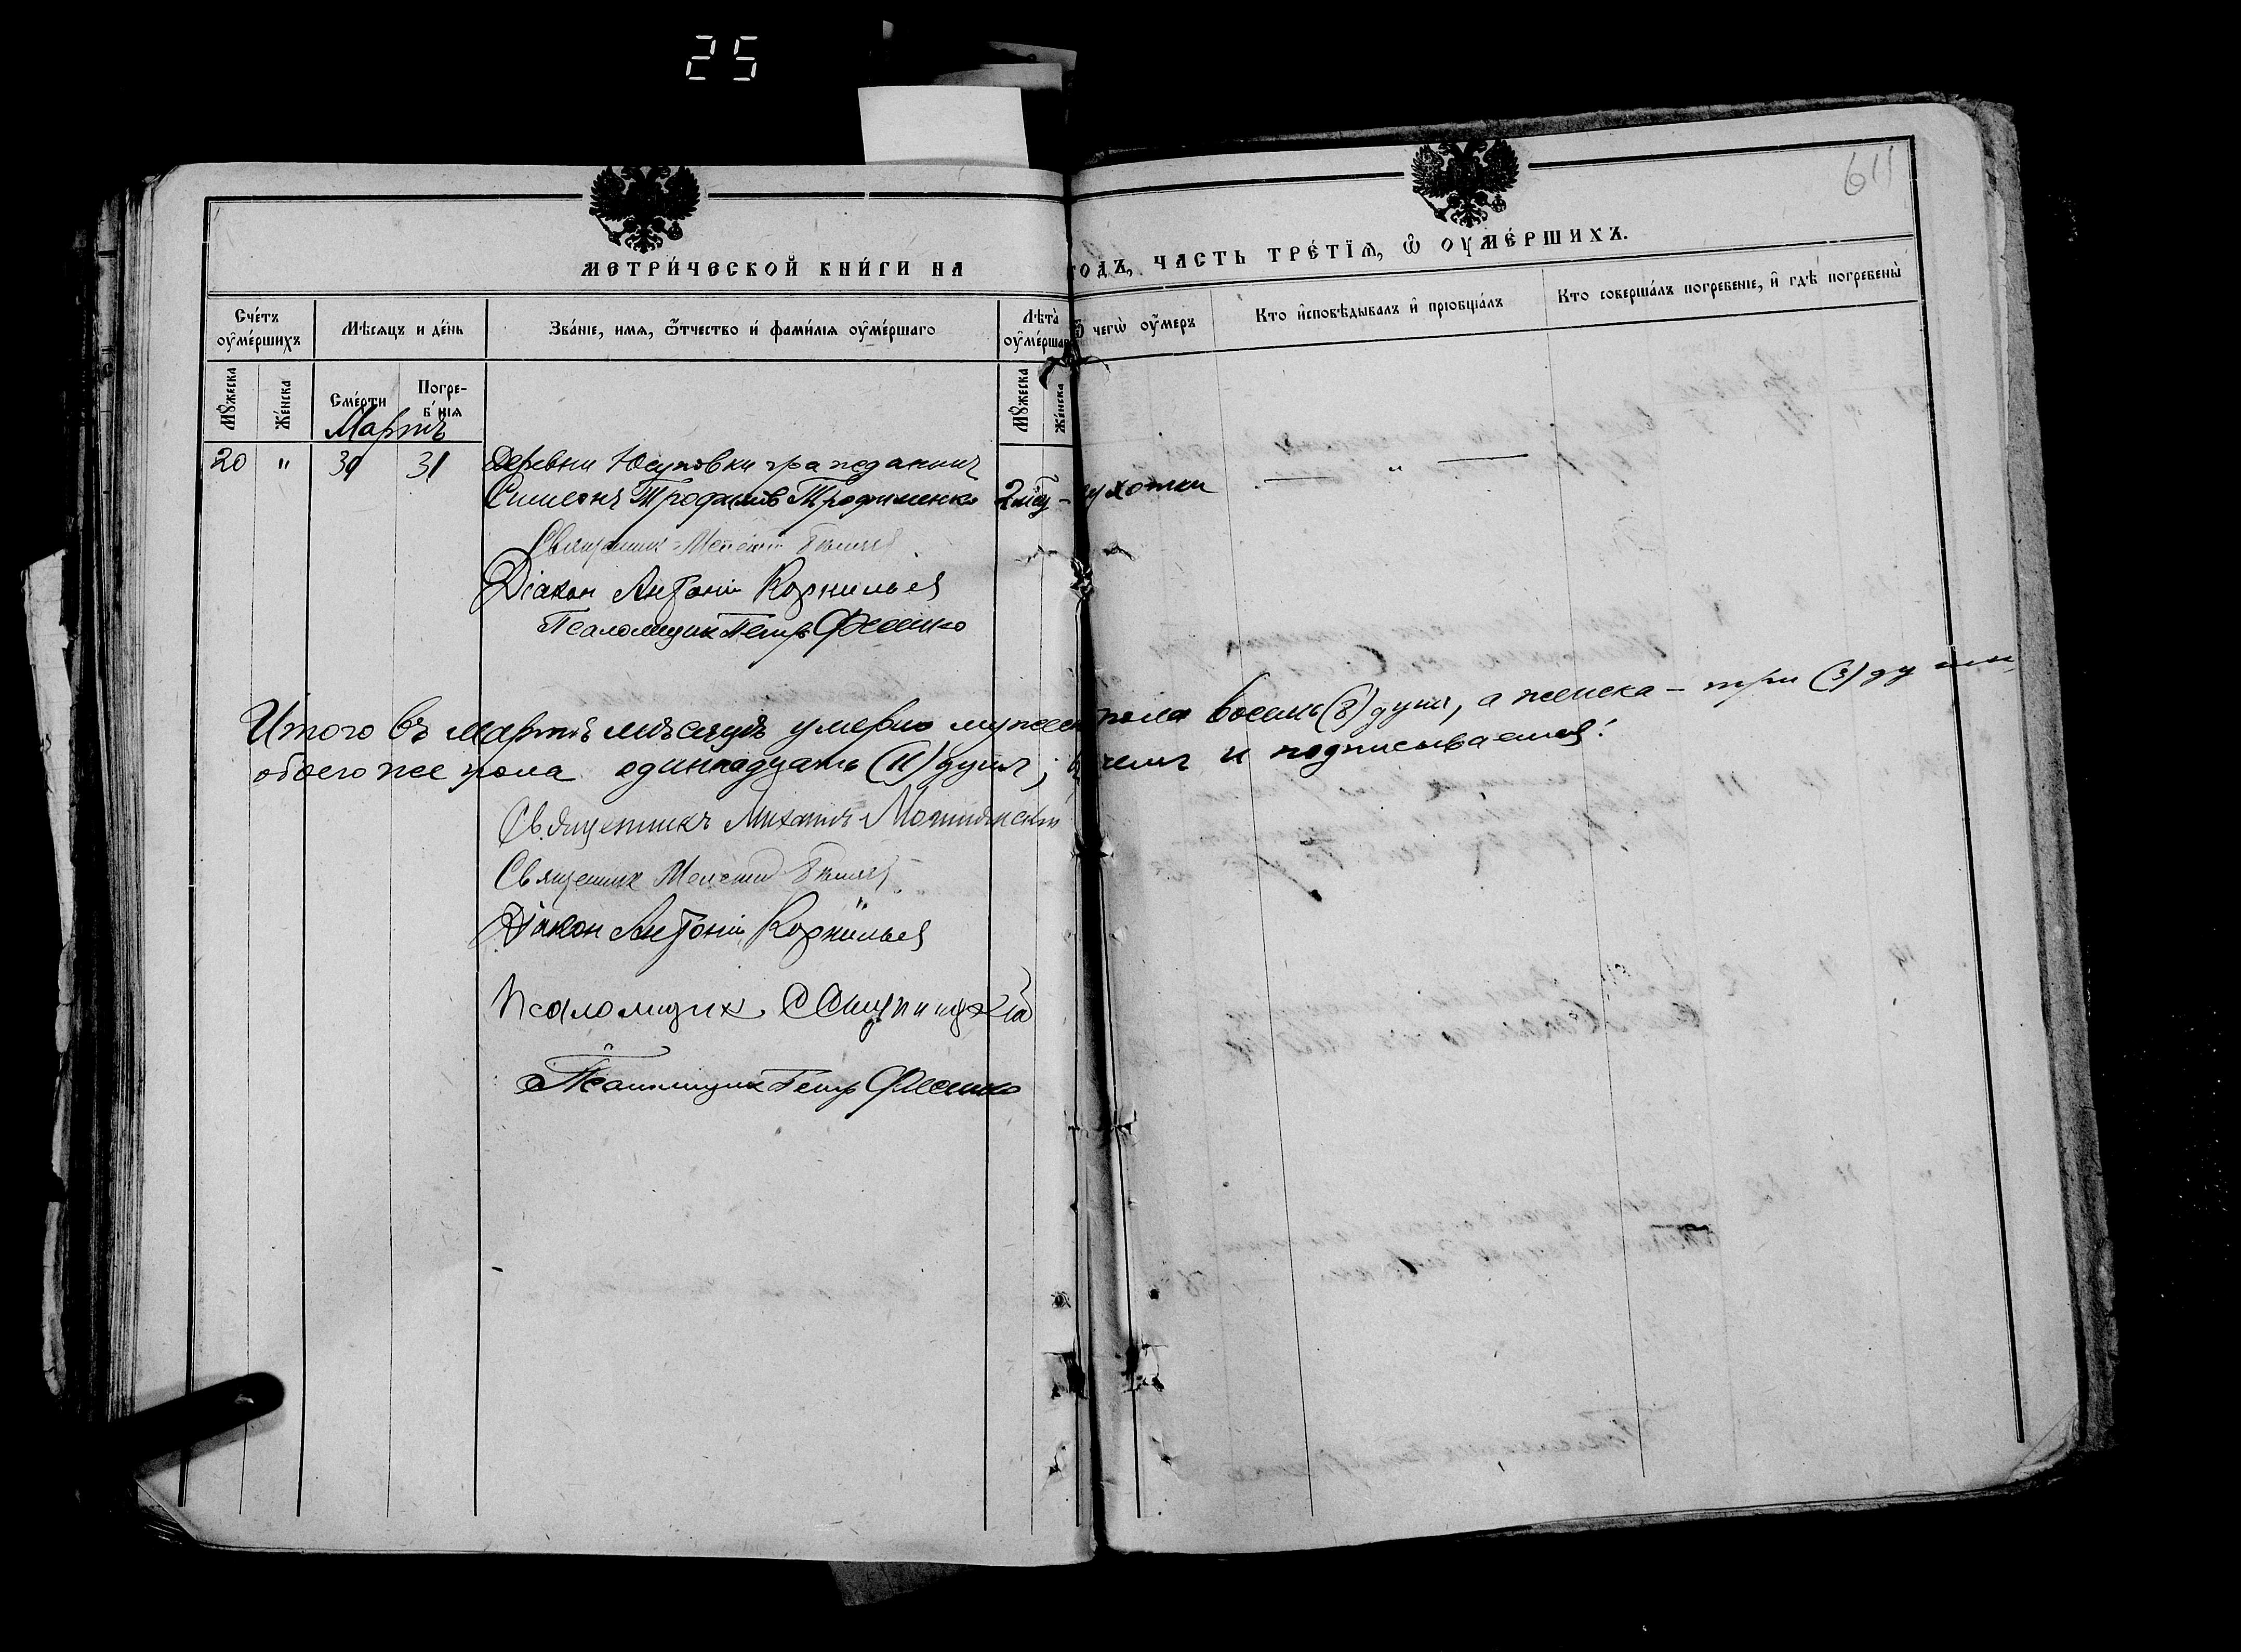 25
611
МЕТРИ́ЧЕСКОЙ КНИ́ГИ НА ГОДЪ, ЧАСТЬ ТРЕ́ТІѦ, Ѿ ОУМЕ́РШИХЪ.
Сче́тъ оумéршихъ
Мѣсяцъ и де́нь
Зва́ніе, имя, ѿтчество и фами́лія оуме́ршаго
Лѣта̀ оуме́ршаг
Ѿ чегѡ̀ оу́меръ
Кто и̓сповѣ́дывалъ и̓ пріобща́лъ
Кто соверша́лъ погребе́ніе, и̓ гдѣ̀ погребены̀
Мꙋжеска
Же́нска
Сме́рти
Погре-
б нія
Мꙋжеска
Же́нска
Мартъ
20 " 30 31 Деревни Юсуповки гражданинъ
Симеонъ Трофимовъ Трофименко 2 мѣс. - сухотки " 
Священник
Діакон Антоній Корнильев
Псаломщик Петр Фесенко
Итого въ мартѣ мѣсяцѣ умерло мужеск пола восемь (8) душъ, а женска - три (3) души
обоего же пола одиннадцать (11) душъ, въ чемъ и подписываемся:
Священникъ Михаилъ
Священник
Діакон Антоній Корнильев
Псаломщик
Псаломщик Петр Фесенко